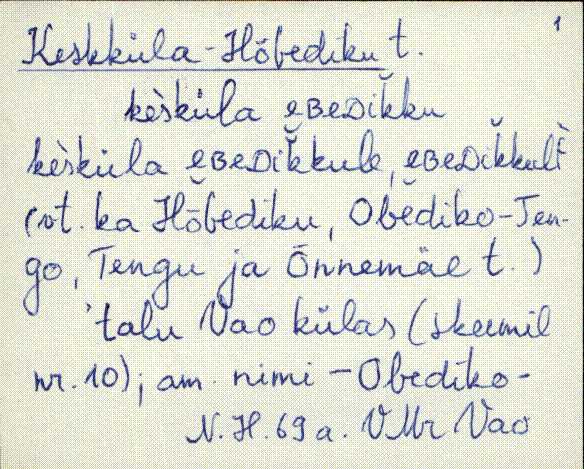 1
Keskküla-Hõbediku t.
kèsküla ẹʙᴇᴅik̆ku
kèsküla ẹʙᴇᴅik̆kule, ẹʙᴇᴅik̆kulᴇ̀
(vt. ka Hõbediku, Obediko-Ten-
go, Tengu ja Õnnemäe t.)
'talu Vao külas (skeemil
nr. 10); am. nimi – Obediko-
N.H. 69 a. VMr Vao